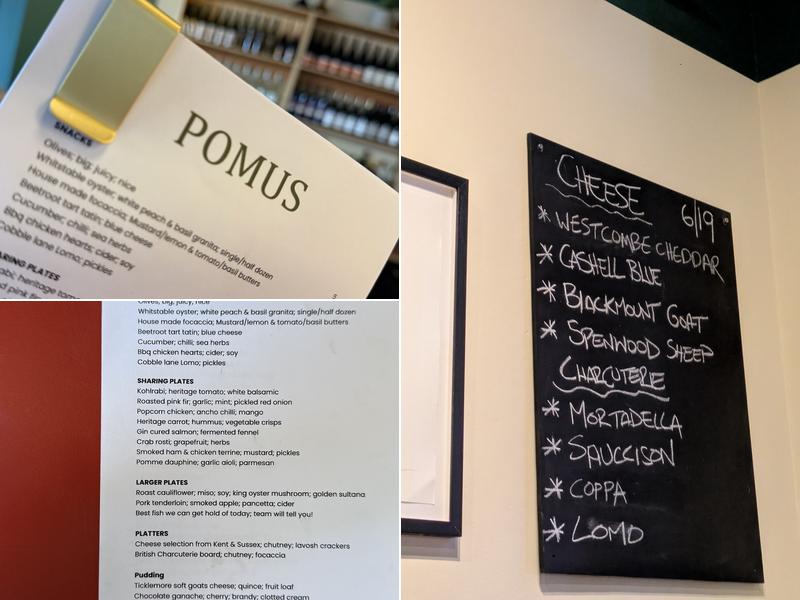 POMUS
SNACKS
Olives; big, juicy, nice
Whitstable oyster; white peach & basil granita; single/half dozen
House made focaccia; Mustard/lemon & tomato/basil butters
Beetroot tart tatin; blue cheese
Cucumber; chilli; sea herbs
Bbq chicken hearts; cider; soy
Cobble lane Lomo; pickles
ARING PLATES
abi; heritage tom
d pink fir
Olives; big, juicy, nice
Whitstable oyster; white peach & basil granita; single/half dozen
House made focaccia; Mustard/lemon & tomato/basil butters
Beetroot tart tatin; blue cheese
Cucumber; chilli; sea herbs
Bbq chicken hearts; cider; soy
Cobble lane Lomo; pickles
SHARING PLATES
Kohlrabi; heritage tomato; white balsamic
Roasted pink fir; garlic; mint; pickled red onion
Popcorn chicken; ancho chilli; mango
Heritage carrot; hummus; vegetable crisps
Gin cured salmon; fermented fennel
Crab rosti; grapefruit; herbs
Smoked ham & chicken terrine; mustard; pickles
Pomme dauphine; garlic aioli; parmesan
LARGER PLATES
Roast cauliflower; miso; soy; king oyster mushroom; golden sultana
Pork tenderloin; smoked apple; pancetta; cider
Best fish we can get hold of today; team will tell you!
PLATTERS
Cheese selection from Kent & Sussex; chutney; lavosh crackers
British Charcuterie board; chutney; focaccia
Pudding
Ticklemore soft goats cheese; quince; fruit loaf
Chocolate ganache; cherry; brandy; clotted cream
CHEESE 6/19
* WESTCOMBE CHEDDAR
* CASHELL BLUE
* BLACKMOUNT GOAT
* SPENWOOD SHEEP
CHARCUTERIE
* MORTADELLA
* SAUCCISON
* COPPA
* LOMO